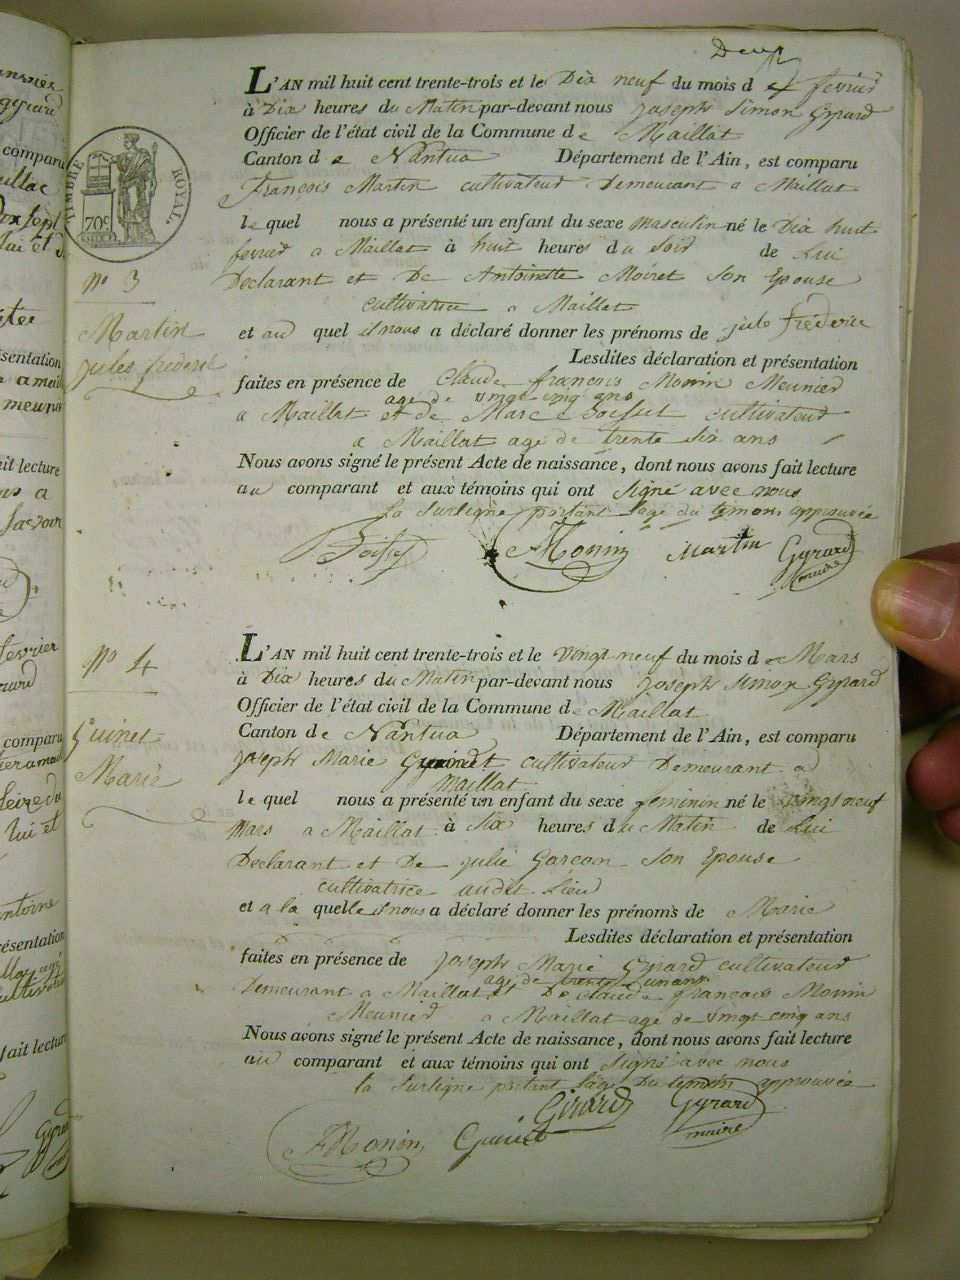 Deux
L'AN mil huit cent trente-trois et le Dix neuf du mois de fevrier
à Dix heures du Matin par-devant nous Joseph Simon Gyrard
Officier de l'état civil de la Commune de Maillat
Canton de Nantua Département de l'Ain, est comparu
François Martin cultivateur Demeurant a Maillat
le quel nous a présenté un enfant du sexe masculin né le Dix huit
fevrier a Maillat à huit heures du Soir de Lui
Declarant et De Antoinette Moiret Son Epouse
cultivatrice a Maillat
et au quel il nous a déclaré donner les prénoms de jule frederic
Lesdites déclaration et présentation
faites en présence de Claude françois Monin Meunier
age de vingt cinq ans
a Maillat et de Marc Boisset cultivateur
a Maillat age de trente six ans
Nous avons signé le présent Acte de naissance, dont nous avons fait lecture
au comparant et aux témoins qui ont signé avec nous
la Surligne portant l'age du temoin approuvée
Boisset Monin Martin Gyrard
maire
TIMBRE ROYAL.
70c
No 3
Martin
jules frederic
L'AN mil huit cent trente-trois et le vingt neuf du mois de Mars
à Dix heures du Matin par-devant nous Joseph Simon Gyrard
Officier de l'état civil de la Commune de Maillat
Canton de Nantua Département de l'Ain, est comparu
Joseph Marie Guinet cultivateur Demeurant a
Maillat
le quel nous a présenté un enfant du sexe feminin né le vingt neuf
Mars a Maillat à Six heures du Matin de Lui
Declarant et De julie Garcon Son Epouse
cultivatrice audit Lieu
et a la quelle il nous a déclaré donner les prénoms de Marie
Lesdites déclaration et présentation
faites en présence de Joseph Marie Gyrard cultivateur
age de trente
Demeurant a Maillat et De claude françois Monin
Meunier a Maillat age de vingt cinq ans
Nous avons signé le présent Acte de naissance, dont nous avons fait lecture
au comparant et aux témoins qui ont signé avec nous
la Surligne portant l'age Du temoin approuvée
Girard Gyrard
Monin Guinet maire
No 4
Guinet
Marie